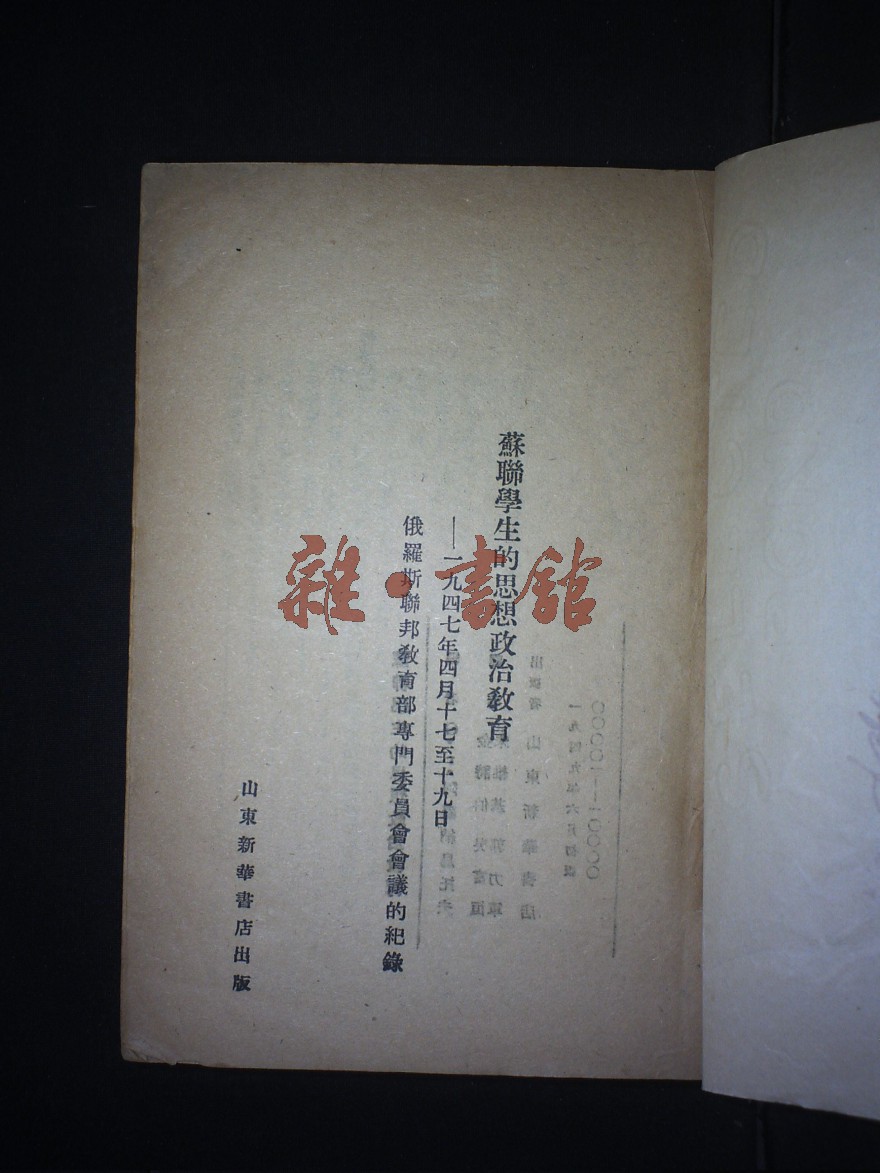 蘇聯學生的思想政治敎育
——一九四七年四月十七至十九日
俄羅斯聯邦敎育部專門委員會會議的紀錄
山東新華書店出版
雜·書館
出版者 山東新華書店
一九四九年六月初版
00001—10000